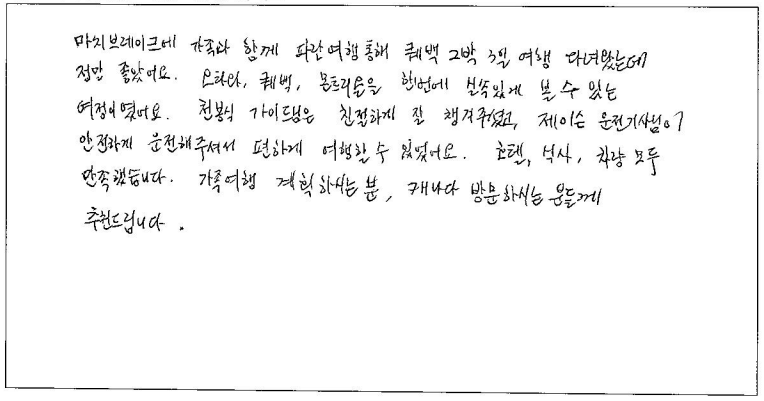 마치브레이크에 가족과 함께 파란여행통해 퀘백 2박 3일 여행 다녀왔는데
정말 좋았어요. 오타와, 퀘백, 몬트리올을 한번에 실속있게 볼 수 있는
여정이였어요. 천봉식 가이드님은 친절하게 잘 챙겨주셨고, 제이슨 운전기사님이
안전하게 운전해주셔서 편하게 여행할 수 있었어요. 호텔, 식사, 차량 모두
만족했습니다. 가족여행 계획하시는 분, 캐나다 방문하시는 분들께
추천드립니다.